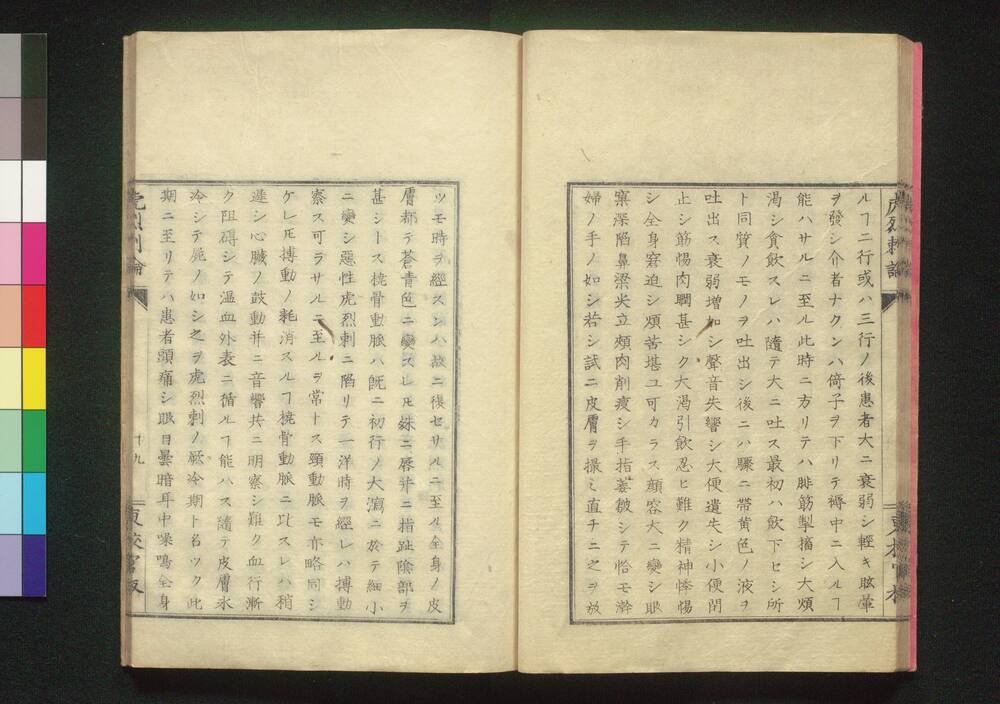 虎烈刺論
ルヿ二行或ハ三行ノ後患者大ニ衰弱シ輕キ眩暈
ヲ發シ介者ナクンハ倚子ヲ下リテ褥中ニ入ルヿ
能ハサルニ至ル此時ニ方リテハ腓筋掣搐シ大煩
渴シ貪飲スレハ隨テ大ニ吐ス最初ハ飲下セシ所
ト同質ノモノヲ吐出シ後ニハ驟ニ帶黄色ノ液ヲ
吐出ス衰弱增加シ聲音失響シ大便遺失シ小便閉
止シ筋惕肉瞤甚シク大渴引飲忍ヒ難ク精神悸惕
シ全身窘迫シ煩苦堪ユ可カラス顔容大ニ變シ眼
窠深陷鼻梁尖立頰肉削瘦シ手指萎皺シテ恰モ澣
婦ノ手ノ如シ若シ試ニ皮膚ヲ撮ミ直チニ之ヲ放
ツモ時ヲ經スンハ故ニ復セサルニ至ル全身ノ皮
膚都テ蒼青色ニ變スレ𪜈殊ニ唇并ニ指趾陰部ヲ
甚シトス撓骨動脈ハ既ニ初行ノ大瀉ニ於テ細小
ニ變シ惡性虎烈刺ニ陷リテ一洋時ヲ經レハ搏動
察ス可ラサルニ至ルヲ常トス頸動脈モ亦略同シ
ケレ𪜈搏動ノ耗消スルヿ撓骨動脈ニ比スレハ稍
遲シ心臟ノ鼓動并ニ音響共ニ明察シ難ク血行漸
ク阻碍シテ溫血外表ニ循ルヿ能ハス隨テ皮膚氷
冷シテ屍ノ如シ之ヲ虎烈刺ノ厥冷期ト名ツク此
期ニ至リテハ患者頭痛シ眼目曇暗耳中噪鳴全身
虎烈刺論
十九
東校官版